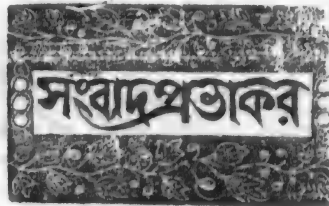 সংবাদপ্রভাকর